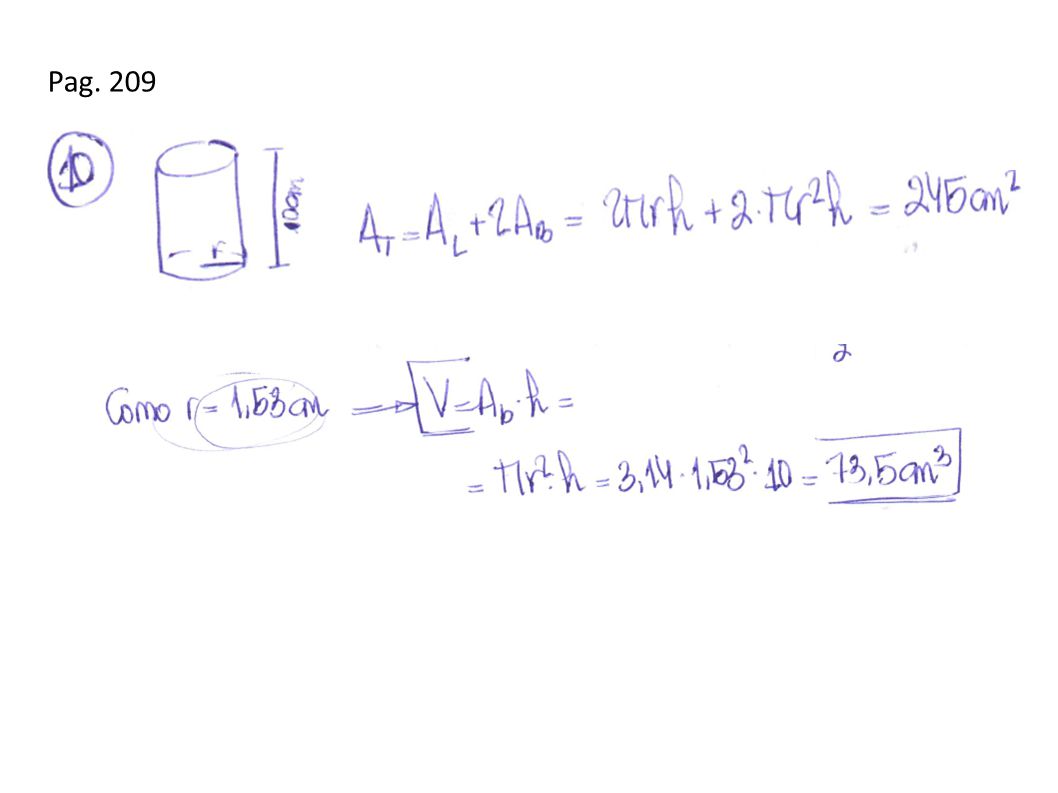 Pag. 209
10
10cm
r
A_T = A_L + 2A_b = 2πrh + 2·πr²h = 245cm²
2
Como r = 1,53cm → V = A_b · h =
= πr²·h = 3,14 · 1,53² · 10 = 73,5cm³